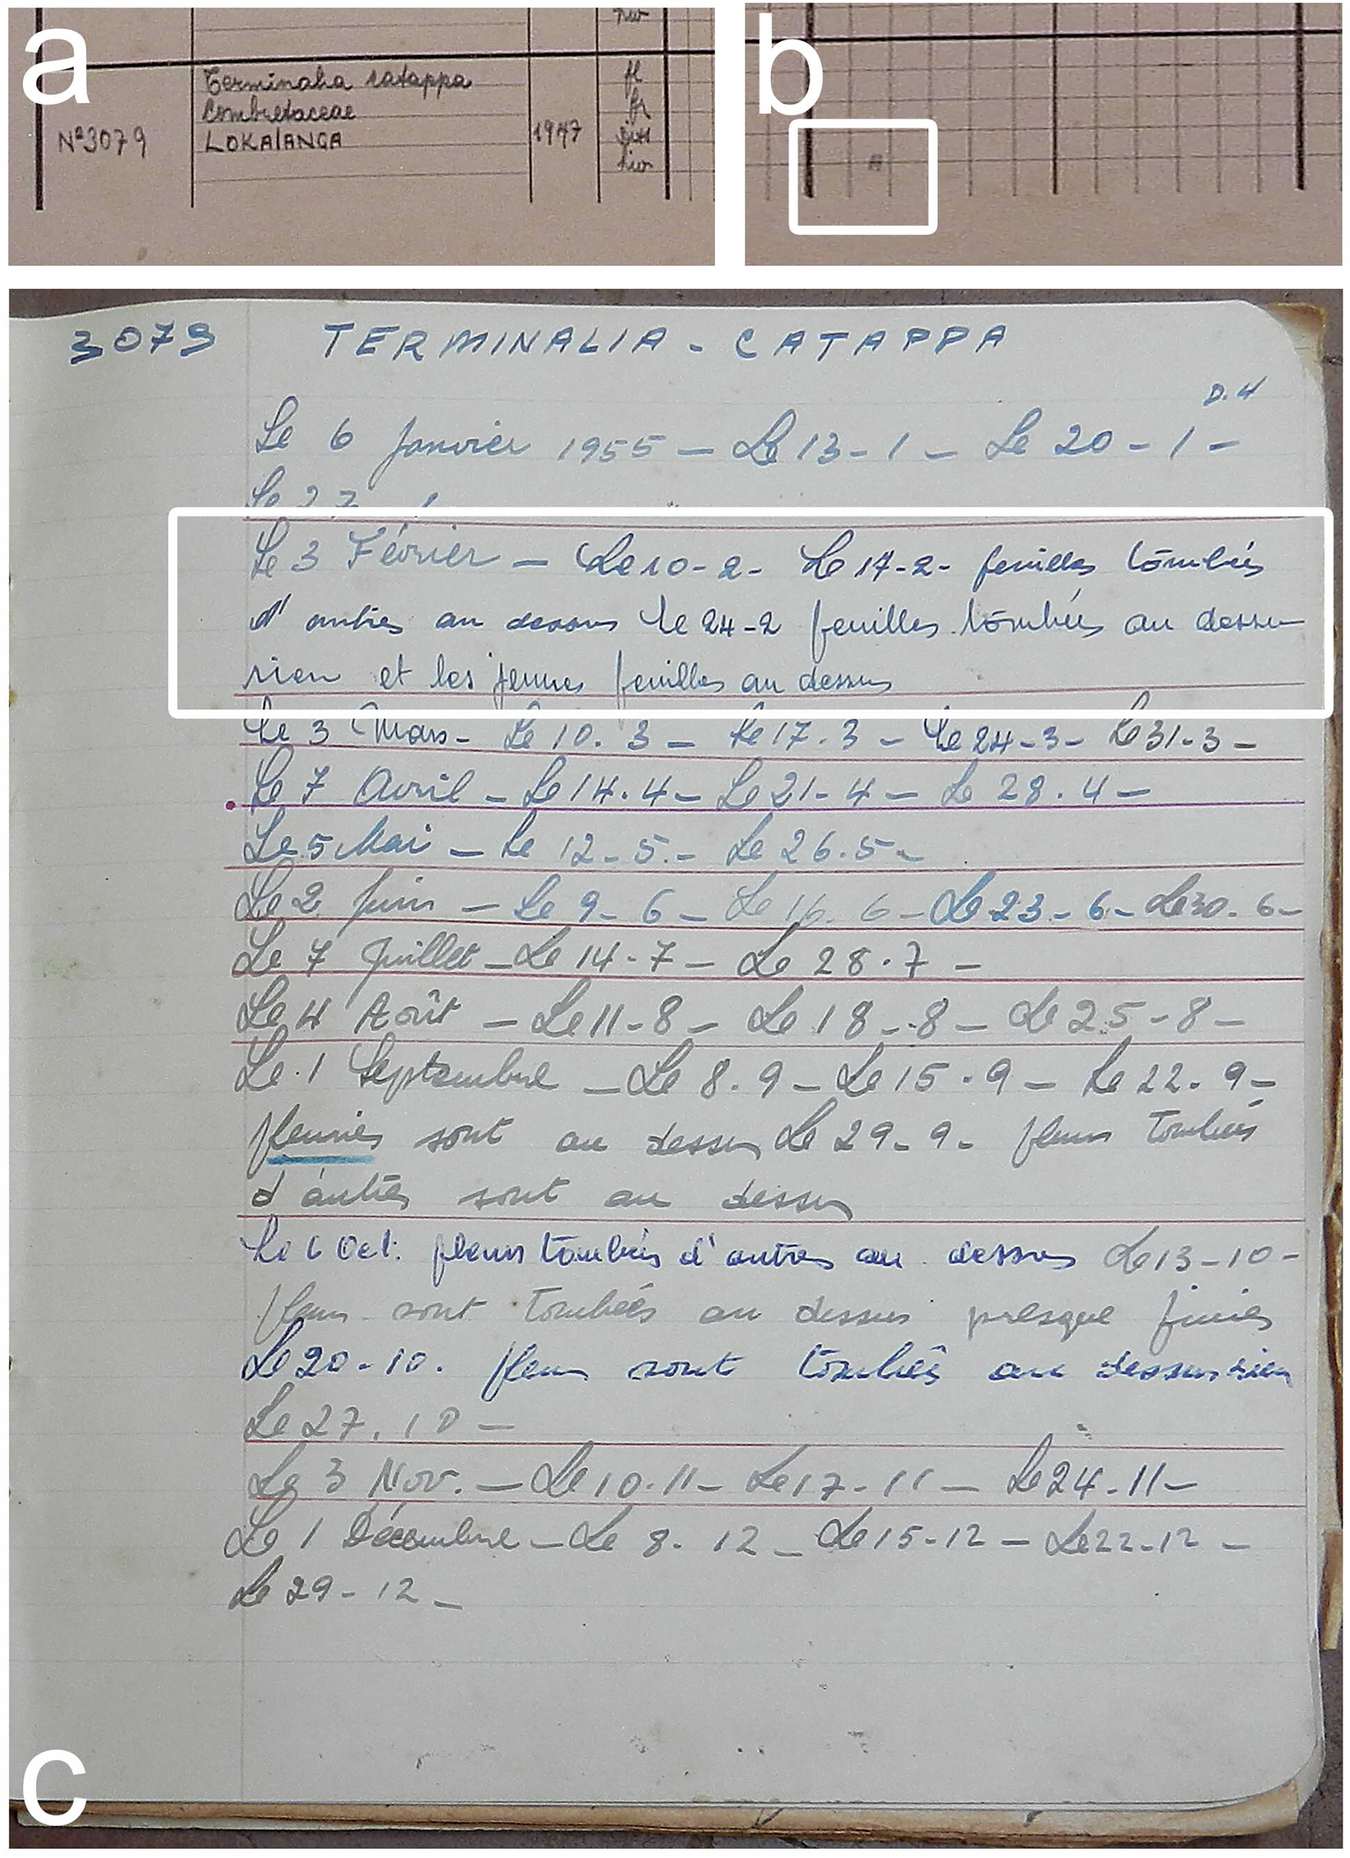 a
Terminalia catappa
Combretaceae
Nº3079 LOKAIANGA 1947
fl
fr
b
c
3079 TERMINALIA - CATAPPA
D.4
Le 6 Janvier 1955 - Le 13-1 - Le 20-1-
Le 27 1
Le 3 Février - Le 10-2- Le 17-2- feuilles tombés
d'autres au dessus Le 24-2 feuilles tombées au dessu
rien et les jeunes feuilles au dessus
Le 3 Mars- Le 10.3- Le 17.3- Le 24-3- Le 31-3-
Le 7 Avril - Le 14.4- Le 21-4- Le 28.4-
Le 5 Mai - Le 12-5.- Le 26.5-
Le 2 Juin - Le 9-6- Le 16.6- Le 23-6- Le 30-6-
Le 7 Juillet - Le 14-7- Le 28.7-
Le 4 Août - Le 11-8- Le 18-8- Le 25-8-
Le 1 Septembre - Le 8.9- Le 15.9- Le 22.9-
fleuries sont au dessus Le 29-9- fleurs tombés
d'autres sont au dessus
Le 6 Oct. fleurs tombés d'autres au dessus Le 13-10-
fleurs sont tombées au dessus presque finies
Le 20-10. fleurs sont tombés au dessus rien
Le 27.10-
Le 3 Nov. - Le 10.11- Le 17-11- Le 24.11-
Le 1 Décembre - Le 8.12- Le 15-12- Le 22-12-
Le 29-12-